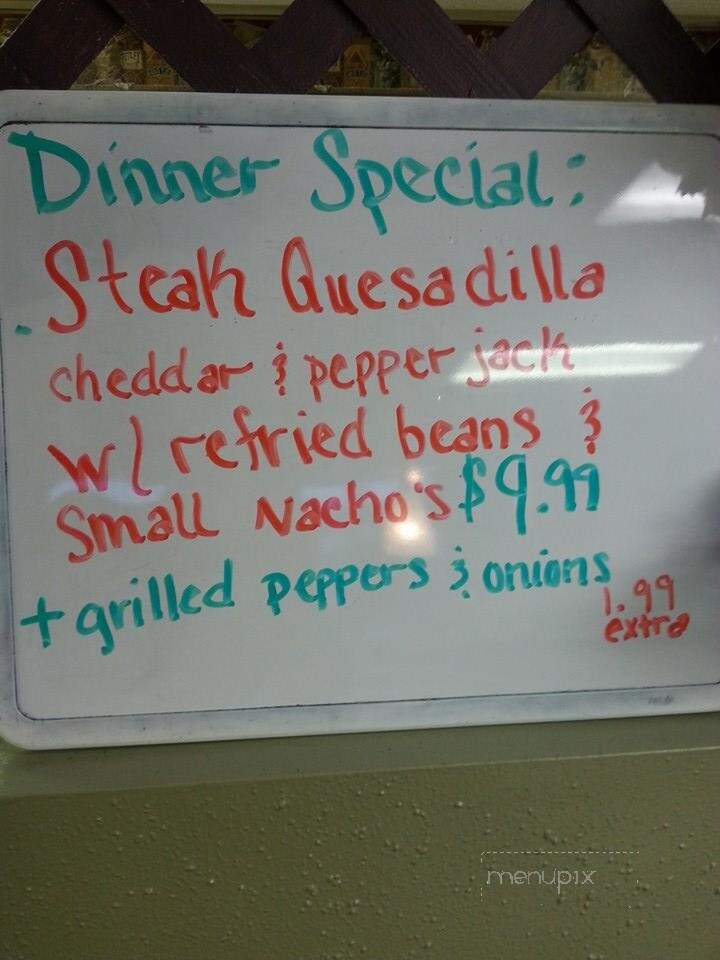 Dinner Special:
Steak Quesadilla
cheddar & pepper jack
w/ refried beans &
Small Nacho's $9.99
+ grilled peppers & onions
1.99
extra
menupix